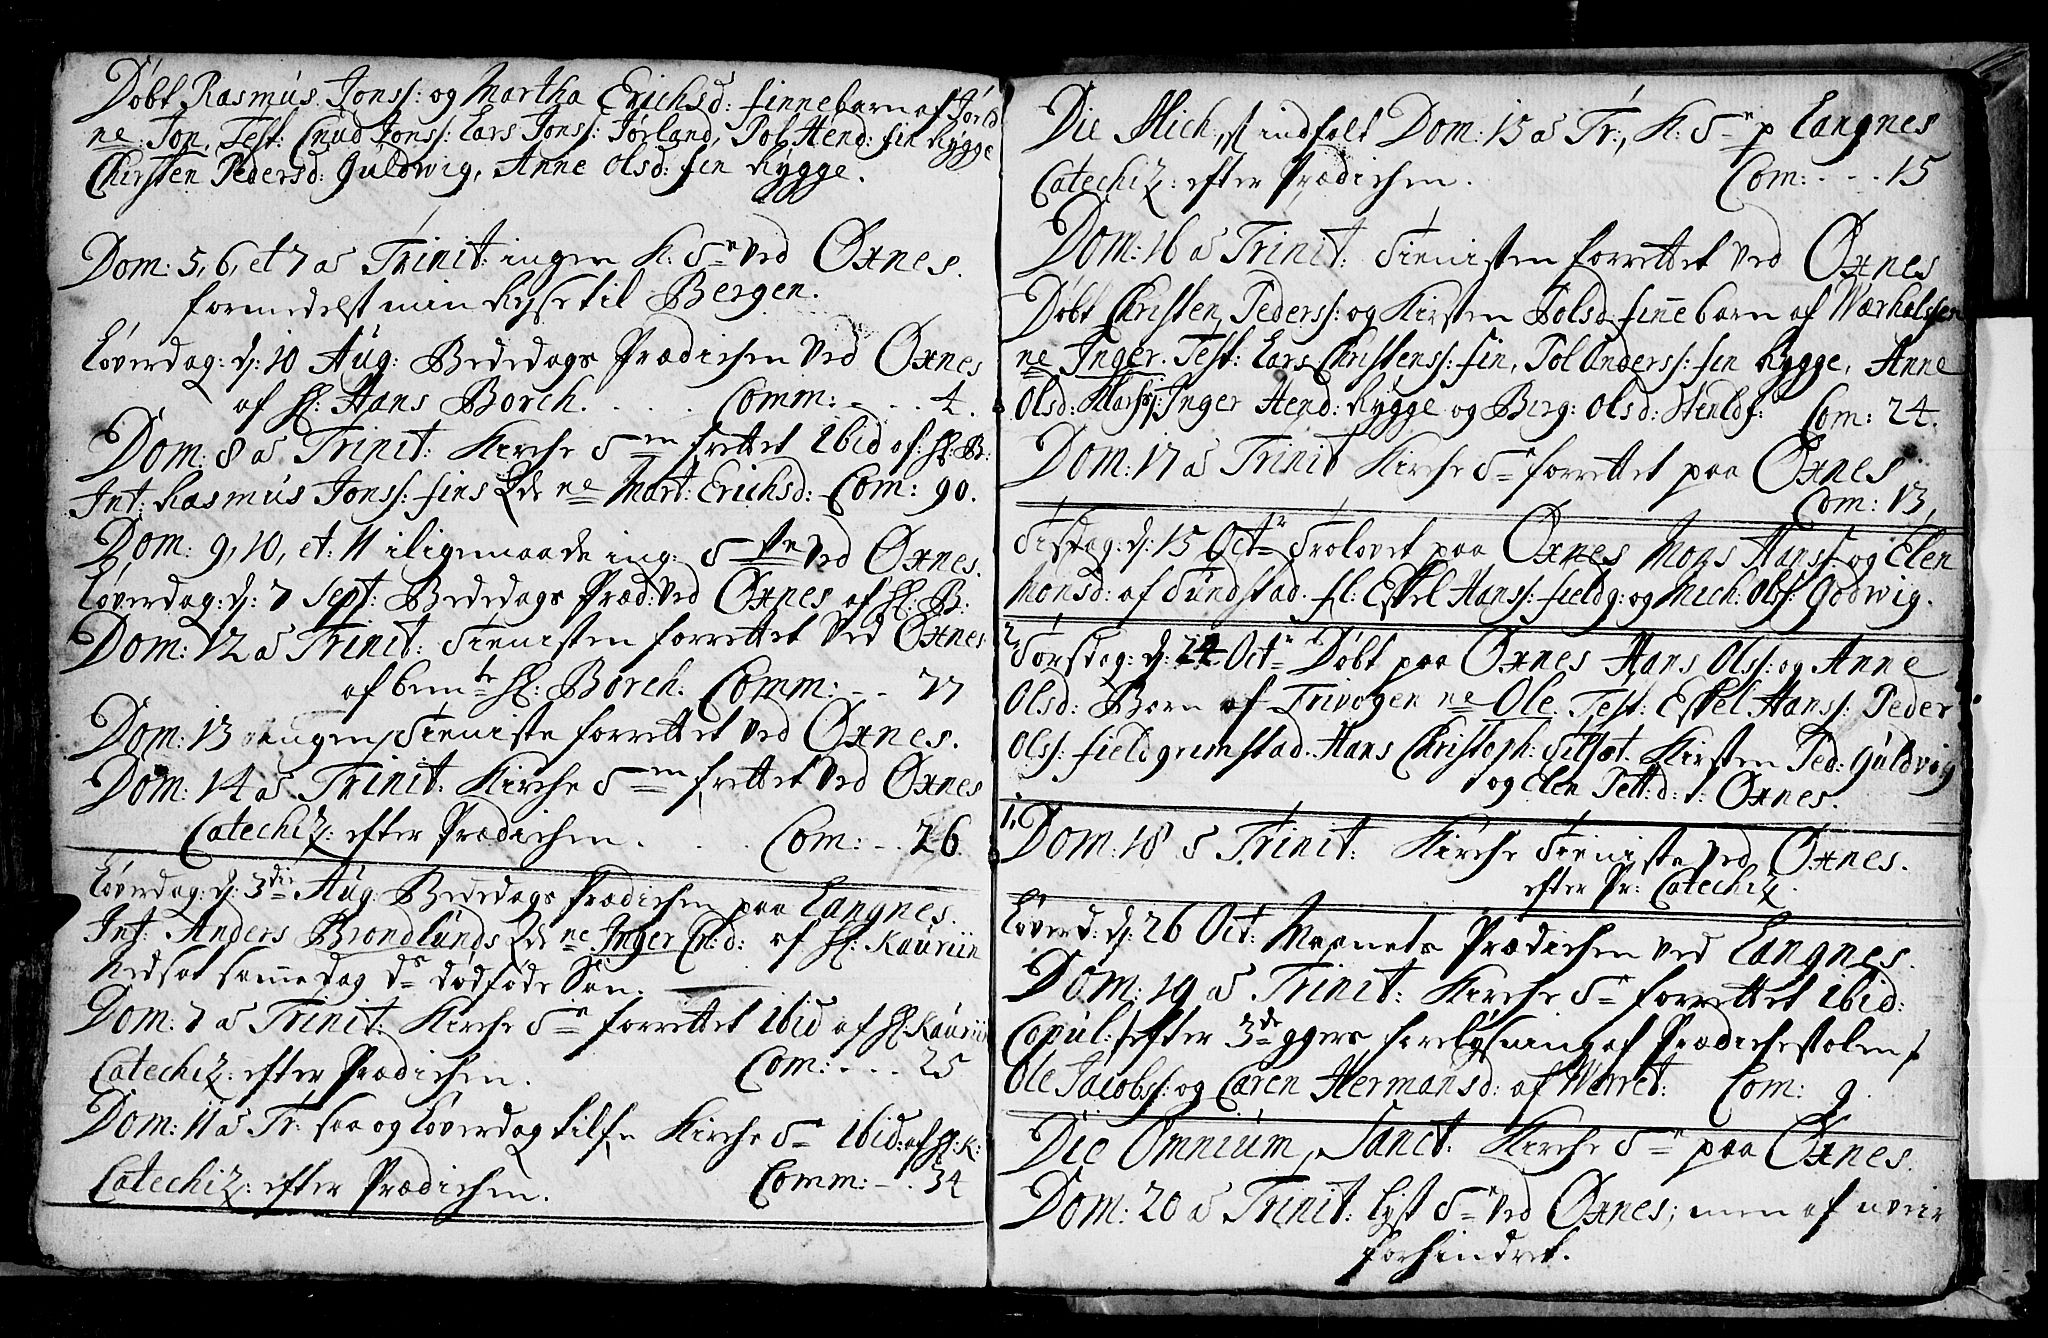 Døbt Rasmus Jonss: og Martha Erichsd: finnebarn af Jorld
ne: Jon, Test: Cnud Jonss: Lars Jonss: Jørland, Pol Hend: fin Rygge
Chirsten Pedersd: Guldwig, Anne Olsd: fin Rygge.
Dom: 5, 6, et 7 a Trinit: ingen K: Sne ved Øxnes.
formedelst min Rejse til Bergen.
Løverdag: d: 10 Aug: Bededags Prædichen ved Øxnes
af Hr: Hans Borch. . . . Comm: - . . 4.
Dom: 8 a Trinit: Kirche Sten frettet ibid af: Hr: B:
Int: Rasmus Jonss: fins qde ne Mart: Erichsd: Com: 90.
Dom: 9, 10, et: 11 iligemaade ing: Ste ved Øxnes.
Løverdag: d: 7 Sept: Bededags Præd: ved Øxnes af Hr: B:
Dom: 12 a Trinit: Tienisten forrettet ved Øxnes
af bemte Hr: Borch. Comm: - - 77
Dom: 13 ingen Tieniste forrettet ved Øxnes.
Dom: 14 a Trinit: Kirche Sten frettet ved Øxnes
Catechiz: efter Prædichen. . . . Com: - . 26.
Løverdag: d: 3die Aug: Bededags Prædichen paa Langnes.
Int: Anders Brondlunds qde ne Inger Cn: d: af Hr: Kauriin
Nedsat samme dag ds dødføde Søn.
Dom: 7 a Trinit: Kirche Sne forrettet ibid af Hr: Kauriin
Catechiz: efter Prædichen. Com: - . . . 25
Dom: 11 a Tr: saa og Løverdag tilfn Kirche Sne ibid: af Hr: K:
Catechiz: efter Prædichen. Comm: - . 34
Die Mich:, st indfalt Dom: 15 a Tr:, K: Sne p Langnes
Catechiz: efter Prædichen. Com: - - - 15
Dom: 16 a Trinit: Tienisten forrettet ved Øxnes
Døbt Christen Pederss: og Kirsten Polsd: finnebarn af
ne Inger. Test: Lars Christenss: fin, Pol Anderss: fin Rygge, Anne
Olsd: Inger Hend: Rygge og Berg: Olsd: Com: 24.
Dom: 17 a Trinit Kirche Sne forrettet paa Øxnes
Com: 13,
Tisdag: d: 15 Octr Trolovet paa Øxnes Mons Hanss: og Elen
Monsd: af Tundstad. fl: Eskel Hanss: fieldg: og Mich: Olss: Godwig.
2, Torsdag: d: 24 Octr Døbt paa Øxnes Hans Olss: og Anne
Olsd: Børn af Trivogen ne Ole. Test: Eskel Hanss: Peder
Olss: fieldgremstad. Hans Christoph: Kirsten Ped: Guldvig
og Elen Pett: d: i: Øxnes.
1, Dom: 18 a Trinit: Kirche Tieniste ved Øxnes.
efter Pr: Catechiz.
Løverd: d: 26 Oct: Maanets Prædichen ved Langnes.
Dom: 19 a Trinit: Kirche Sne forrettet ibid:
Copul: / efter 3de ggers forelysning af Prædichestolen /
Ole Jacobss: og Caren Hermansd: af Werret: Com: 9.
Die Omnium, Sanct: Kirche Sne paa Øxnes.
Dom: 20 a Trinit: lyst Sne ved Øxnes; men af uveir
forhindret.